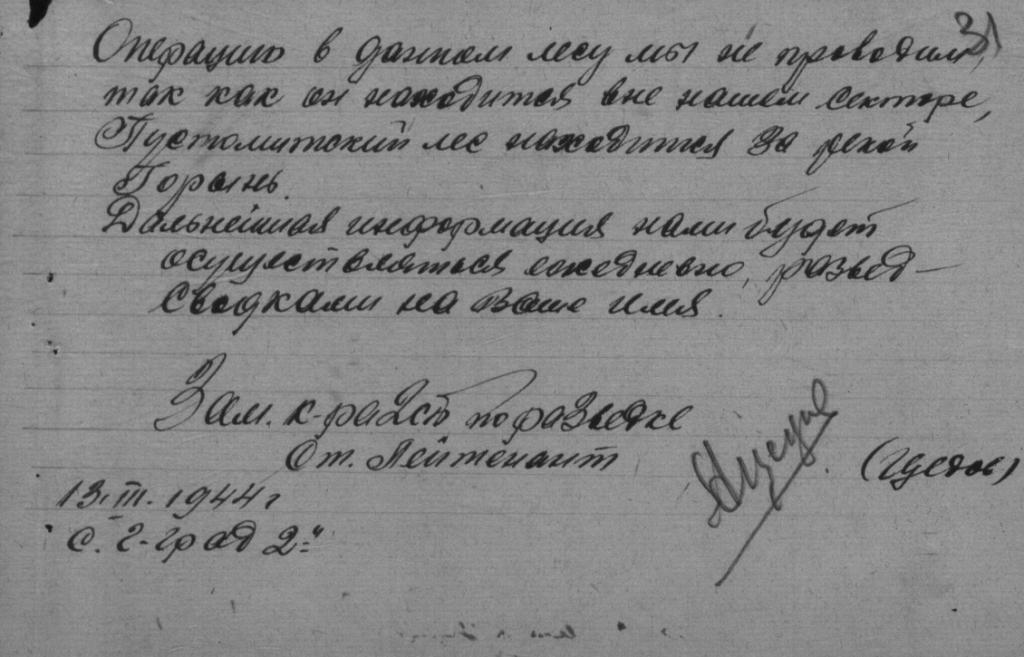 31
Операцию в данном лесу мы не проводим,
так как он находится вне нашем секторе,
Пустомитский лес находится за рекой
Горынь.
Дальнейшая информация нами будет
осуществляться ежедневно, развед-
сводками на Ваше имя.
Зам. к-ра 2сб по разведке
Ст. Лейтенант
13.III.1944 г
с. 2-град 2й